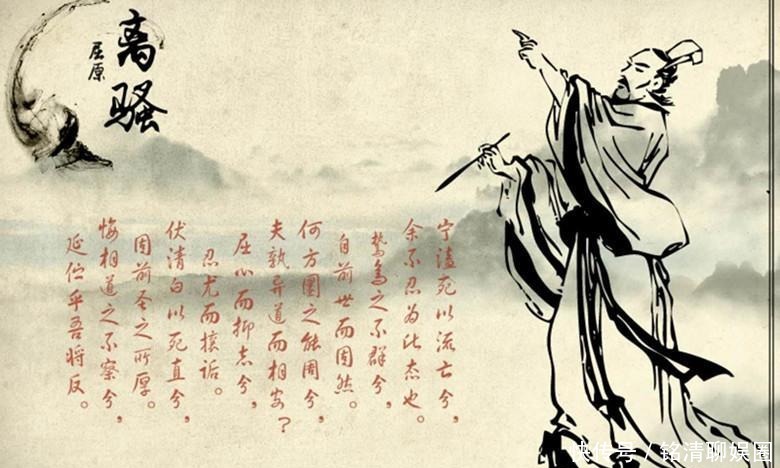 离骚
屈原
宁溘死以流亡兮，
余不忍为此态也。
鸷鸟之不群兮，
自前世而固然。
何方圜之能周兮，
夫孰异道而相安？
屈心而抑志兮，
忍尤而攘诟。
伏清白以死直兮，
固前圣之所厚。
悔相道之不察兮，
延伫乎吾将反。
快传号 / 铭清聊娱圈